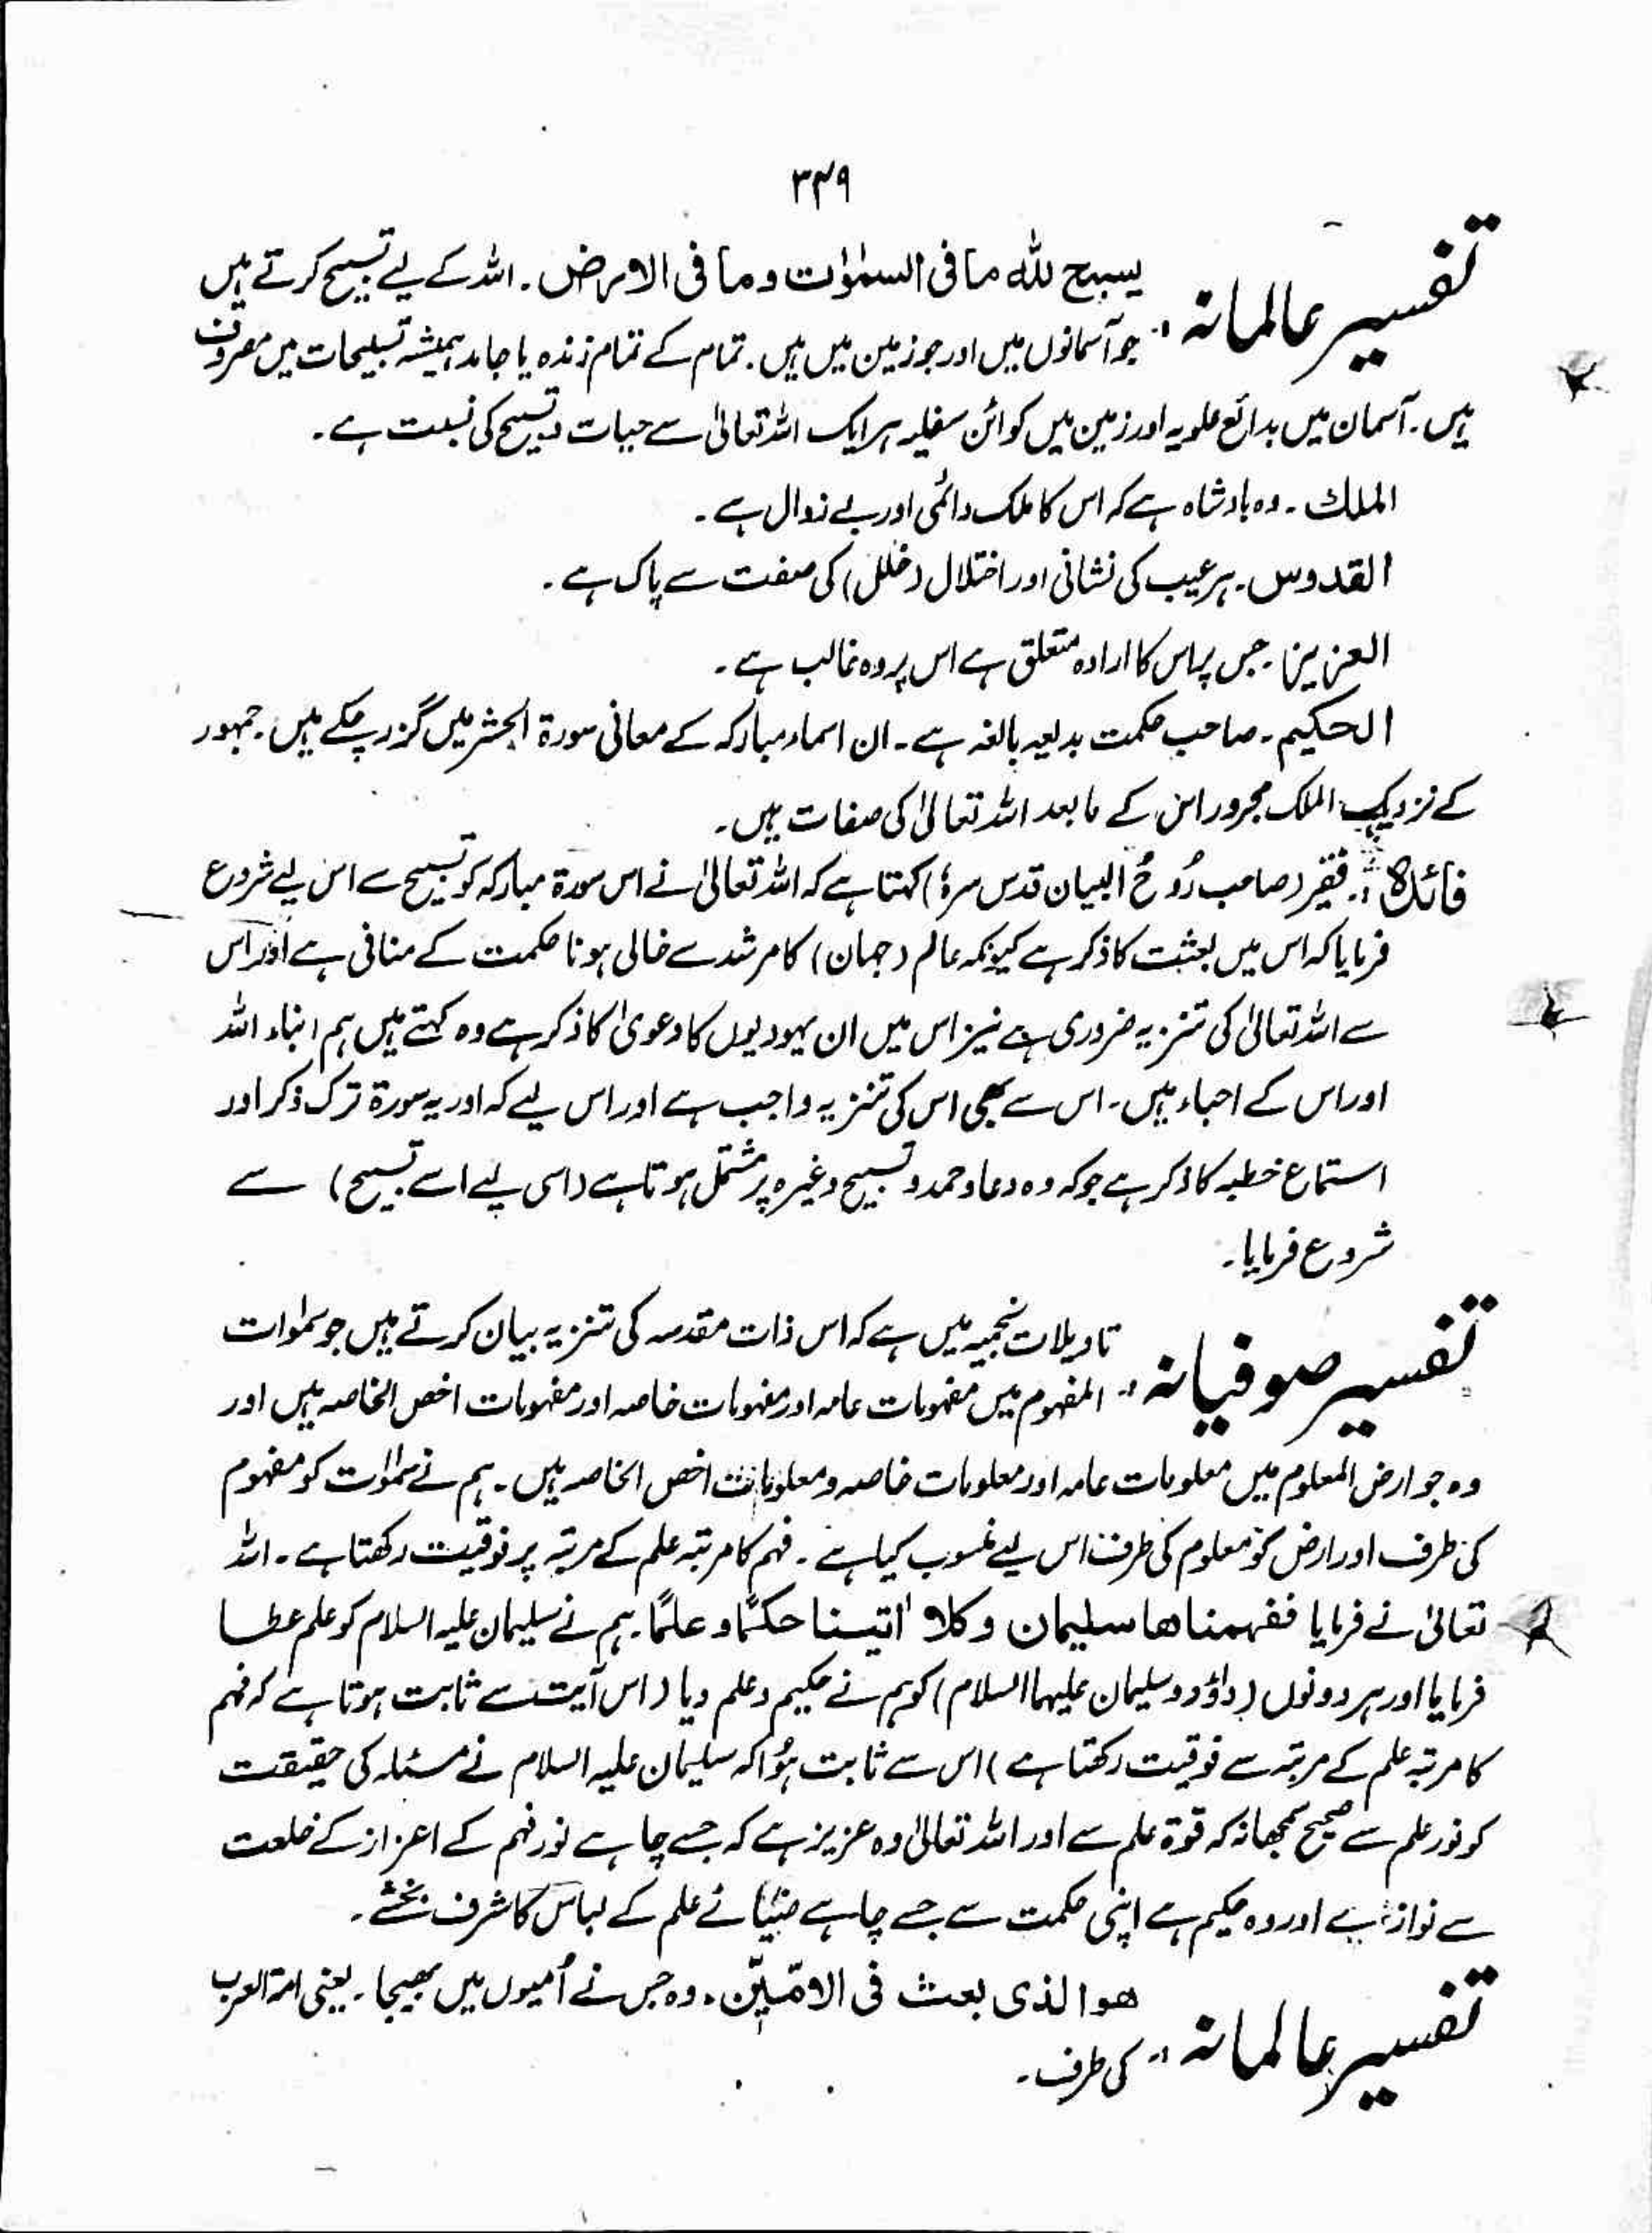 ۳۴۹
تفسیر عالمانہ :۔ یسبح للہ ما فی السمٰوٰت وما فی الارض ۔ اللہ کے لیے تسبیح کرتے ہیں
جو آسمانوں میں اور جو زمین میں ہیں ۔ تمام کے تمام زندہ یا جامد ہمیشہ تسبیحات میں مصروف
ہیں ۔ آسمان میں بدائع علویہ اور زمین میں کوائن سفلیہ ہر ایک اللہ تعالیٰ سے حیات و تسبیح کی نسبت ہے ۔
الملک ۔ وہ بادشاہ ہے کہ اس کا ملک دائمی اور بے زوال ہے ۔
القدوس ۔ ہر عیب کی نشانی اور اختلال (خلل) کی صفت سے پاک ہے ۔
العزیز ۔ جس پر اس کا ارادہ متعلق ہے اس پر وہ غالب ہے ۔
الحکیم ۔ صاحب حکمت بدیعیہ بالغہ ہے ۔ ان اسماء مبارکہ کے معانی سورۃ الحشر میں گزر چکے ہیں ۔ جمہور
کے نزدیک الملک مجرور اس کے مابعد اللہ تعالیٰ کی صفات ہیں ۔
فائدہ :۔ فقیر (صاحب رُوحُ البیان قدس سرہٗ) کہتا ہے کہ اللہ تعالیٰ نے اس سورۃ مبارکہ کو تسبیح سے اس لیے شروع
فرمایا کہ اس میں بعثت کا ذکر ہے کیونکہ عالم (جہان) کا مرشد سے خالی ہونا حکمت کے منافی ہے اور اس
سے اللہ تعالیٰ کی تنزیہ ضروری ہے نیز اس میں ان یہودیوں کا دعویٰ کا ذکر ہے وہ کہتے ہیں ہم ابناء اللہ
اور اس کے احباء ہیں ۔ اس سے بھی اس کی تنزیہ واجب ہے اور اس لیے کہ اور یہ سورۃ ترک ذکر اور
استماع خطبہ کا ذکر ہے جو کہ وہ دعا و حمد و تسبیح وغیرہ پر مشتمل ہوتا ہے (اسی لیے اسے تسبیح) سے
شروع فرمایا ۔
تفسیر صوفیانہ :۔ تاویلات نجمیہ میں ہے کہ اس ذات مقدسہ کی تنزیہ بیان کرتے ہیں جو سمٰوات
المفہوم میں مفہومات عامہ اور مفہومات خاصہ اور مفہومات اخص الخاصہ ہیں اور
وہ جو ارض المعلوم میں معلومات عامہ اور معلومات خاصہ و معلومات اخص الخاصہ ہیں ۔ ہم نے سمٰوات کو مفہوم
کی طرف اور ارض کو معلوم کی طرف اس لیے منسوب کیا ہے ۔ فہم کا مرتبہ علم کے مرتبہ پر فوقیت رکھتا ہے ۔ اللہ
تعالیٰ نے فرمایا ففہمناھا سلیمان وکلا اٰتینا حکمًا و علمًا ۔ ہم نے سلیمان علیہ السلام کو علم عطا
فرمایا اور ہر دونوں (داؤد و سلیمان علیہما السلام) کو ہم نے حکیم و علم دیا (اس آیت سے ثابت ہوتا ہے کہ فہم
کا مرتبہ علم کے مرتبہ سے فوقیت رکھتا ہے) اس سے ثابت ہُوا کہ سلیمان علیہ السلام نے مسئلہ کی حقیقت
کو نور علم سے صحیح سمجھا نہ کہ قوۃ علم سے اور اللہ تعالیٰ وہ عزیز ہے کہ جسے چاہے نور فہم کے اعزاز کے خلعت
سے نوازے اور وہ حکیم ہے اپنی حکمت سے جسے چاہے ضیائے علم کے لباس کا شرف بخشے ۔
تفسیر عالمانہ :۔ ھو الذی بعث فی الامّیّن ۔ وہ جس نے اُمیوں میں بھیجا ۔ یعنی امۃ العرب
کی طرف ۔